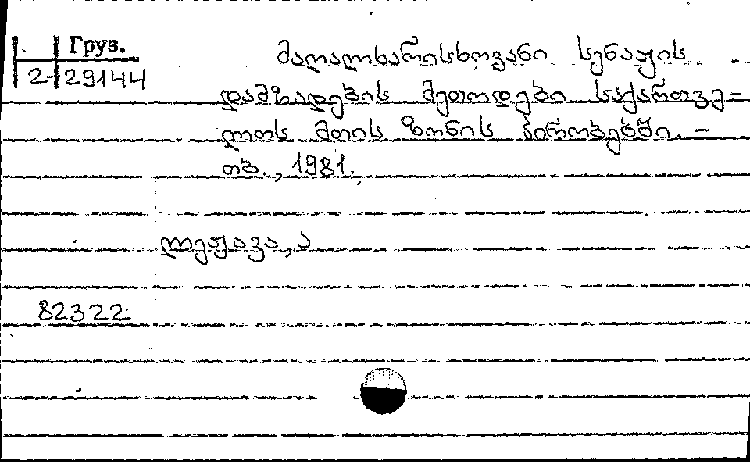 Груз.
2-29144
მაღალხარისხოვანი სენაჟის
დამზადების მეთოდები საქართვე-
ლოს მთის ზონის პირობებში. -
თბ., 1981.
ლეჟავა, ა
82322